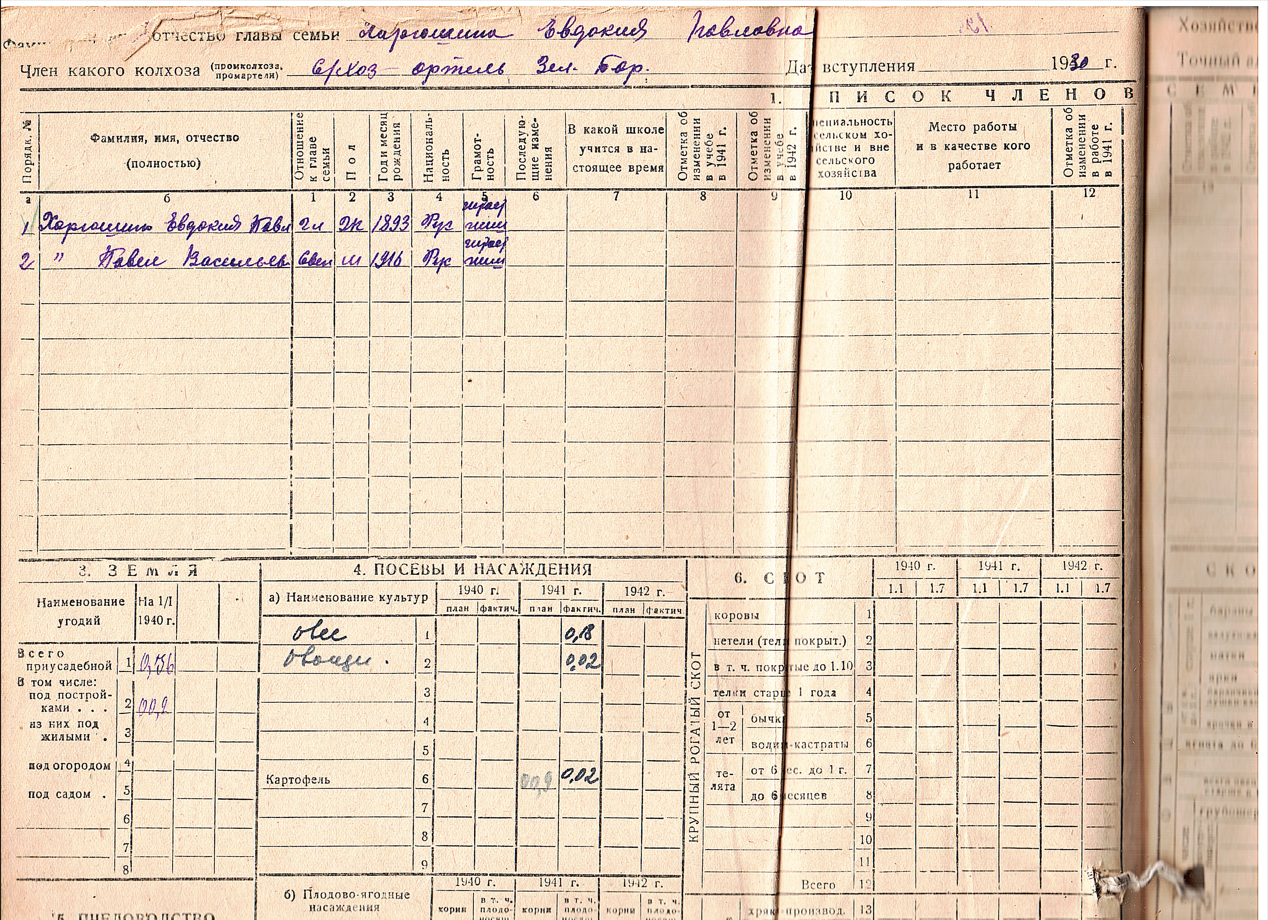 отчество главы семьи Харюшина Евдокия Павловна
Член какого колхоза (промколхоза, промартели) с/хоз артель Зел. Бор. Дат вступления 1930 г.
1. ПИСОК ЧЛЕНОВ
Порядк. № Фамилия, имя, отчество (полностью) Отношение к главе семьи Пол Год и месяц рождения Националь-ность Грамот-ность Последую-щие изме-нения В какой школе учится в на-стоящее время Отметка об изменении в учебе в 1941 г. Отметка об изменении в учебе в 1942 г. пециальность сельском хо-йстве и вне сельского хозяйства Место работы и в качестве кого работает Отметка об изменении в работе в 1941 г.
а б 1 2 3 4 5 6 7 8 9 10 11 12
1 Харюшина Евдокия Павл гл ж 1893 Рус
2 " Павел Васильев м 1916 Рус
3. ЗЕМЛЯ
Наименование угодий На 1/I 1940 г.
Всего приусадебной 1 0,56
В том числе:
под построй-ками . . . 2 00,2
из них под жилыми . 3
под огородом 4
под садом . 5
6
7
8
5. ПЧЕЛОВОДСТВО
4. ПОСЕВЫ И НАСАЖДЕНИЯ
а) Наименование культур 1940 г. 1941 г. 1942 г.
план фактич. план фактич. план фактич.
овес 1 0,18
Овощи . 2 0,02
3
4
5
Картофель 6 00,2 0,02
7
8
9
б) Плодово-ягодные насаждения 1940 г. 1941 г. 1942 г.
корни в т. ч. плодо- корни в т. ч. плодо- корни в т. ч. плодо-
6. СКОТ 1940 г. 1941 г. 1942 г.
1.1 1.7 1.1 1.7 1.1 1.7
КРУПНЫЙ РОГАТЫЙ СКОТ
коровы 1
нетели (тел покрыт.) 2
в т. ч. покрытые до 1.10 3
телки старше 1 года 4
от 1—2 лет бычки 5
волы-кастраты 6
те-лята от 6 ес. до 1 г. 7
до 6 месяцев 8
9
10
11
Всего 12
хряк производ. 13
Хозяйство
Точный а
СЕМ
СКО
бараны